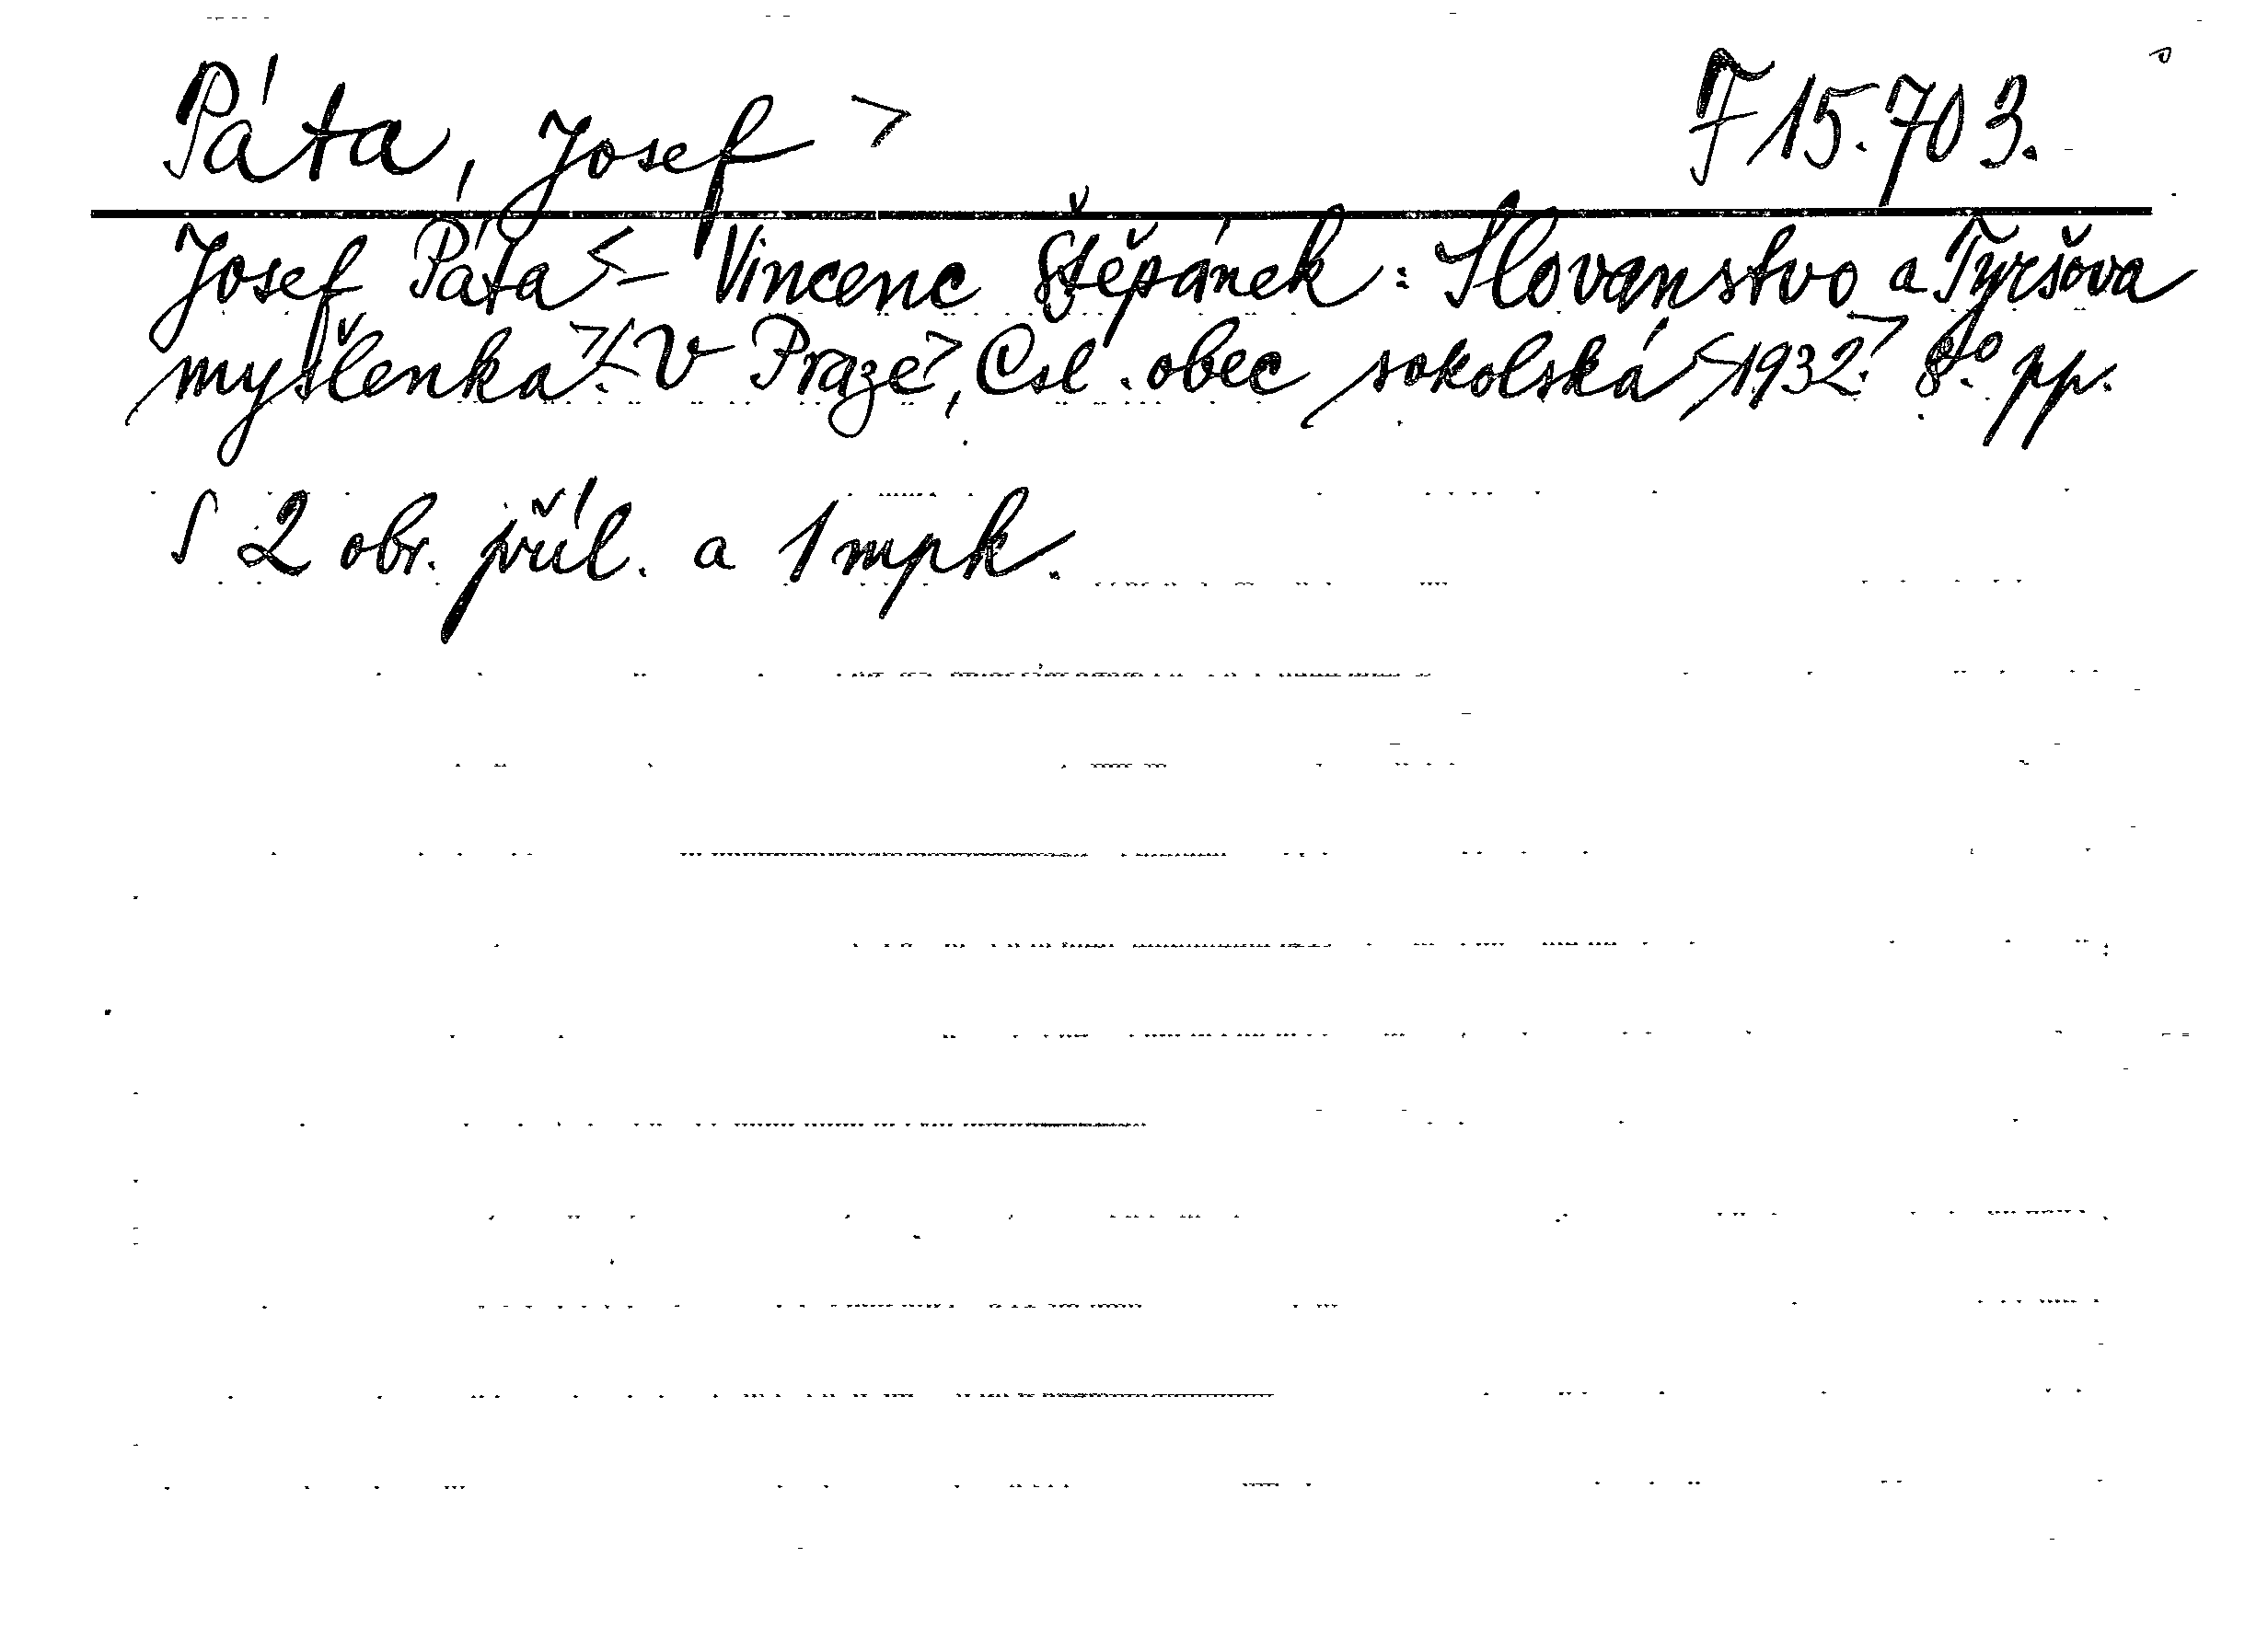 Páta, Josef > F 15.703.
Josef Páta < – Vincenc Štěpánek: Slovanstvo a Tyršova
myšlenka >. < V Praze >, Čsl. obec sokolská < 1932. > 8°. pp.
S 2 obr. příl. a 1 mpk.